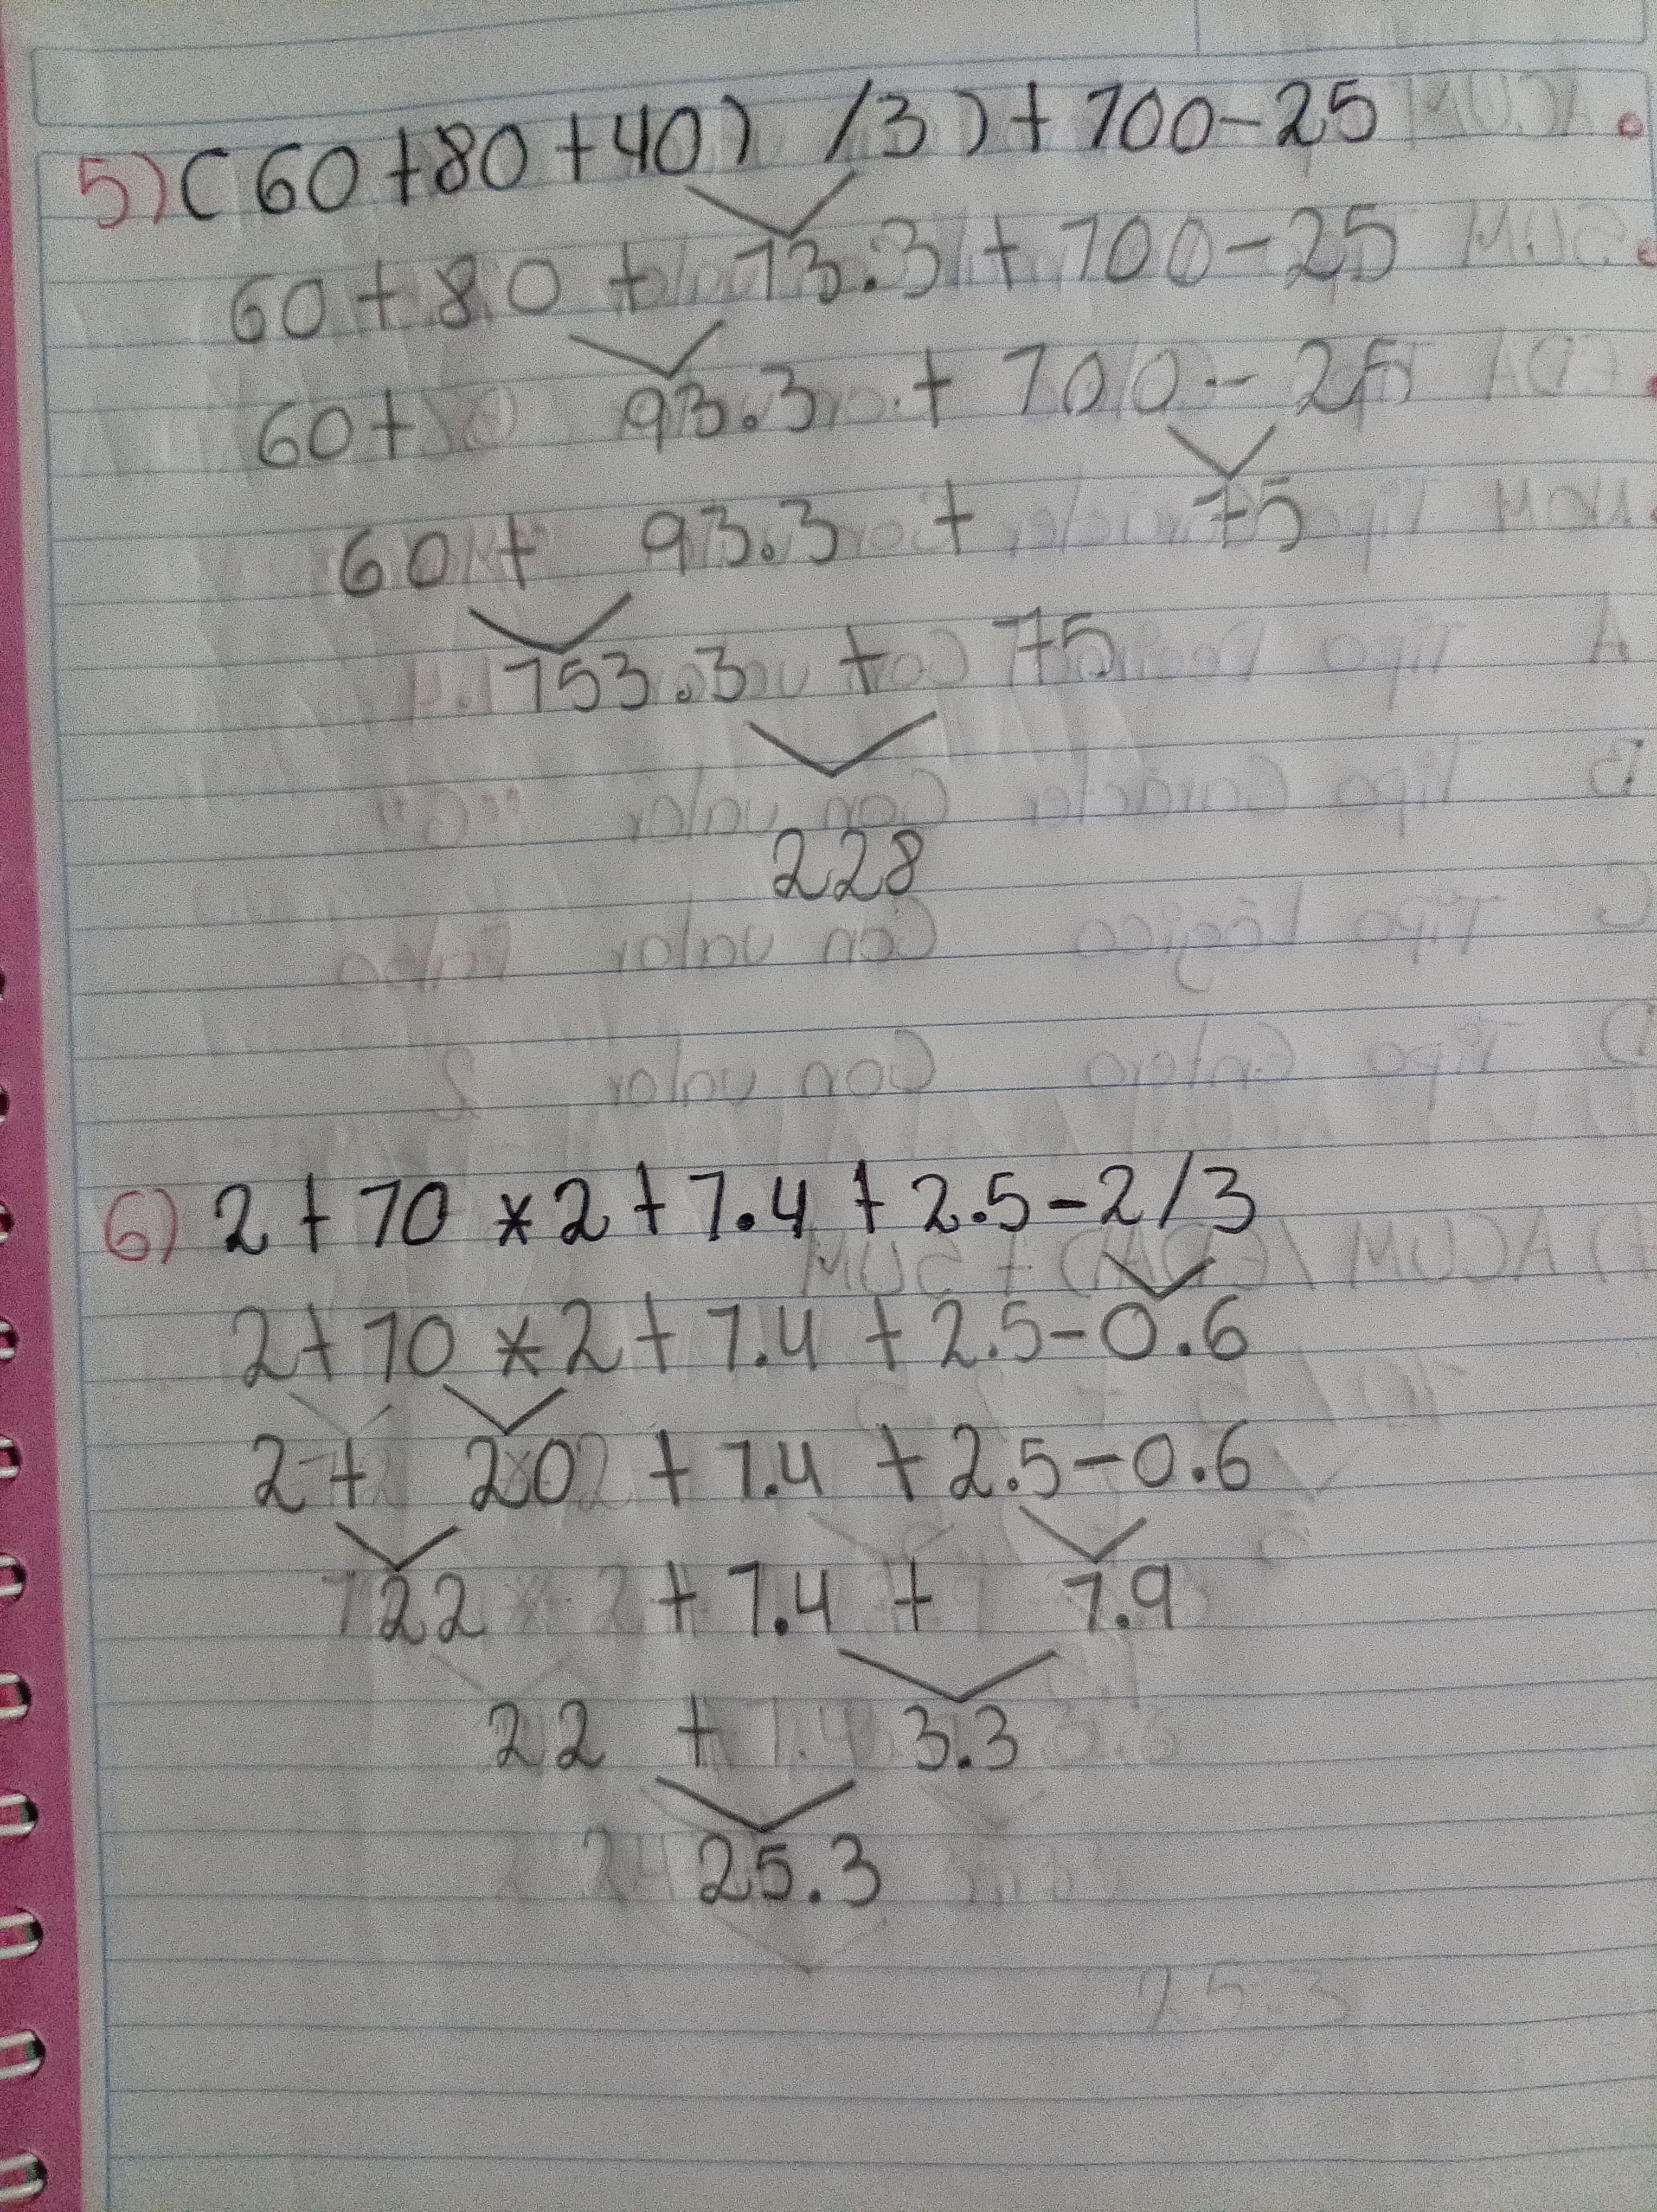 5) (60+80+40) /3)+100-25
60+80+13.3+100-25
60+ 93.3 + 100-25
60+ 93.3 + 75
153.3 + 75
228
6) 2+10*2+1.4+2.5-2/3
2+10*2+1.4+2.5-0.6
2+ 20 +1.4+2.5-0.6
22 +1.4+ 1.9
22 + 3.3
25.3